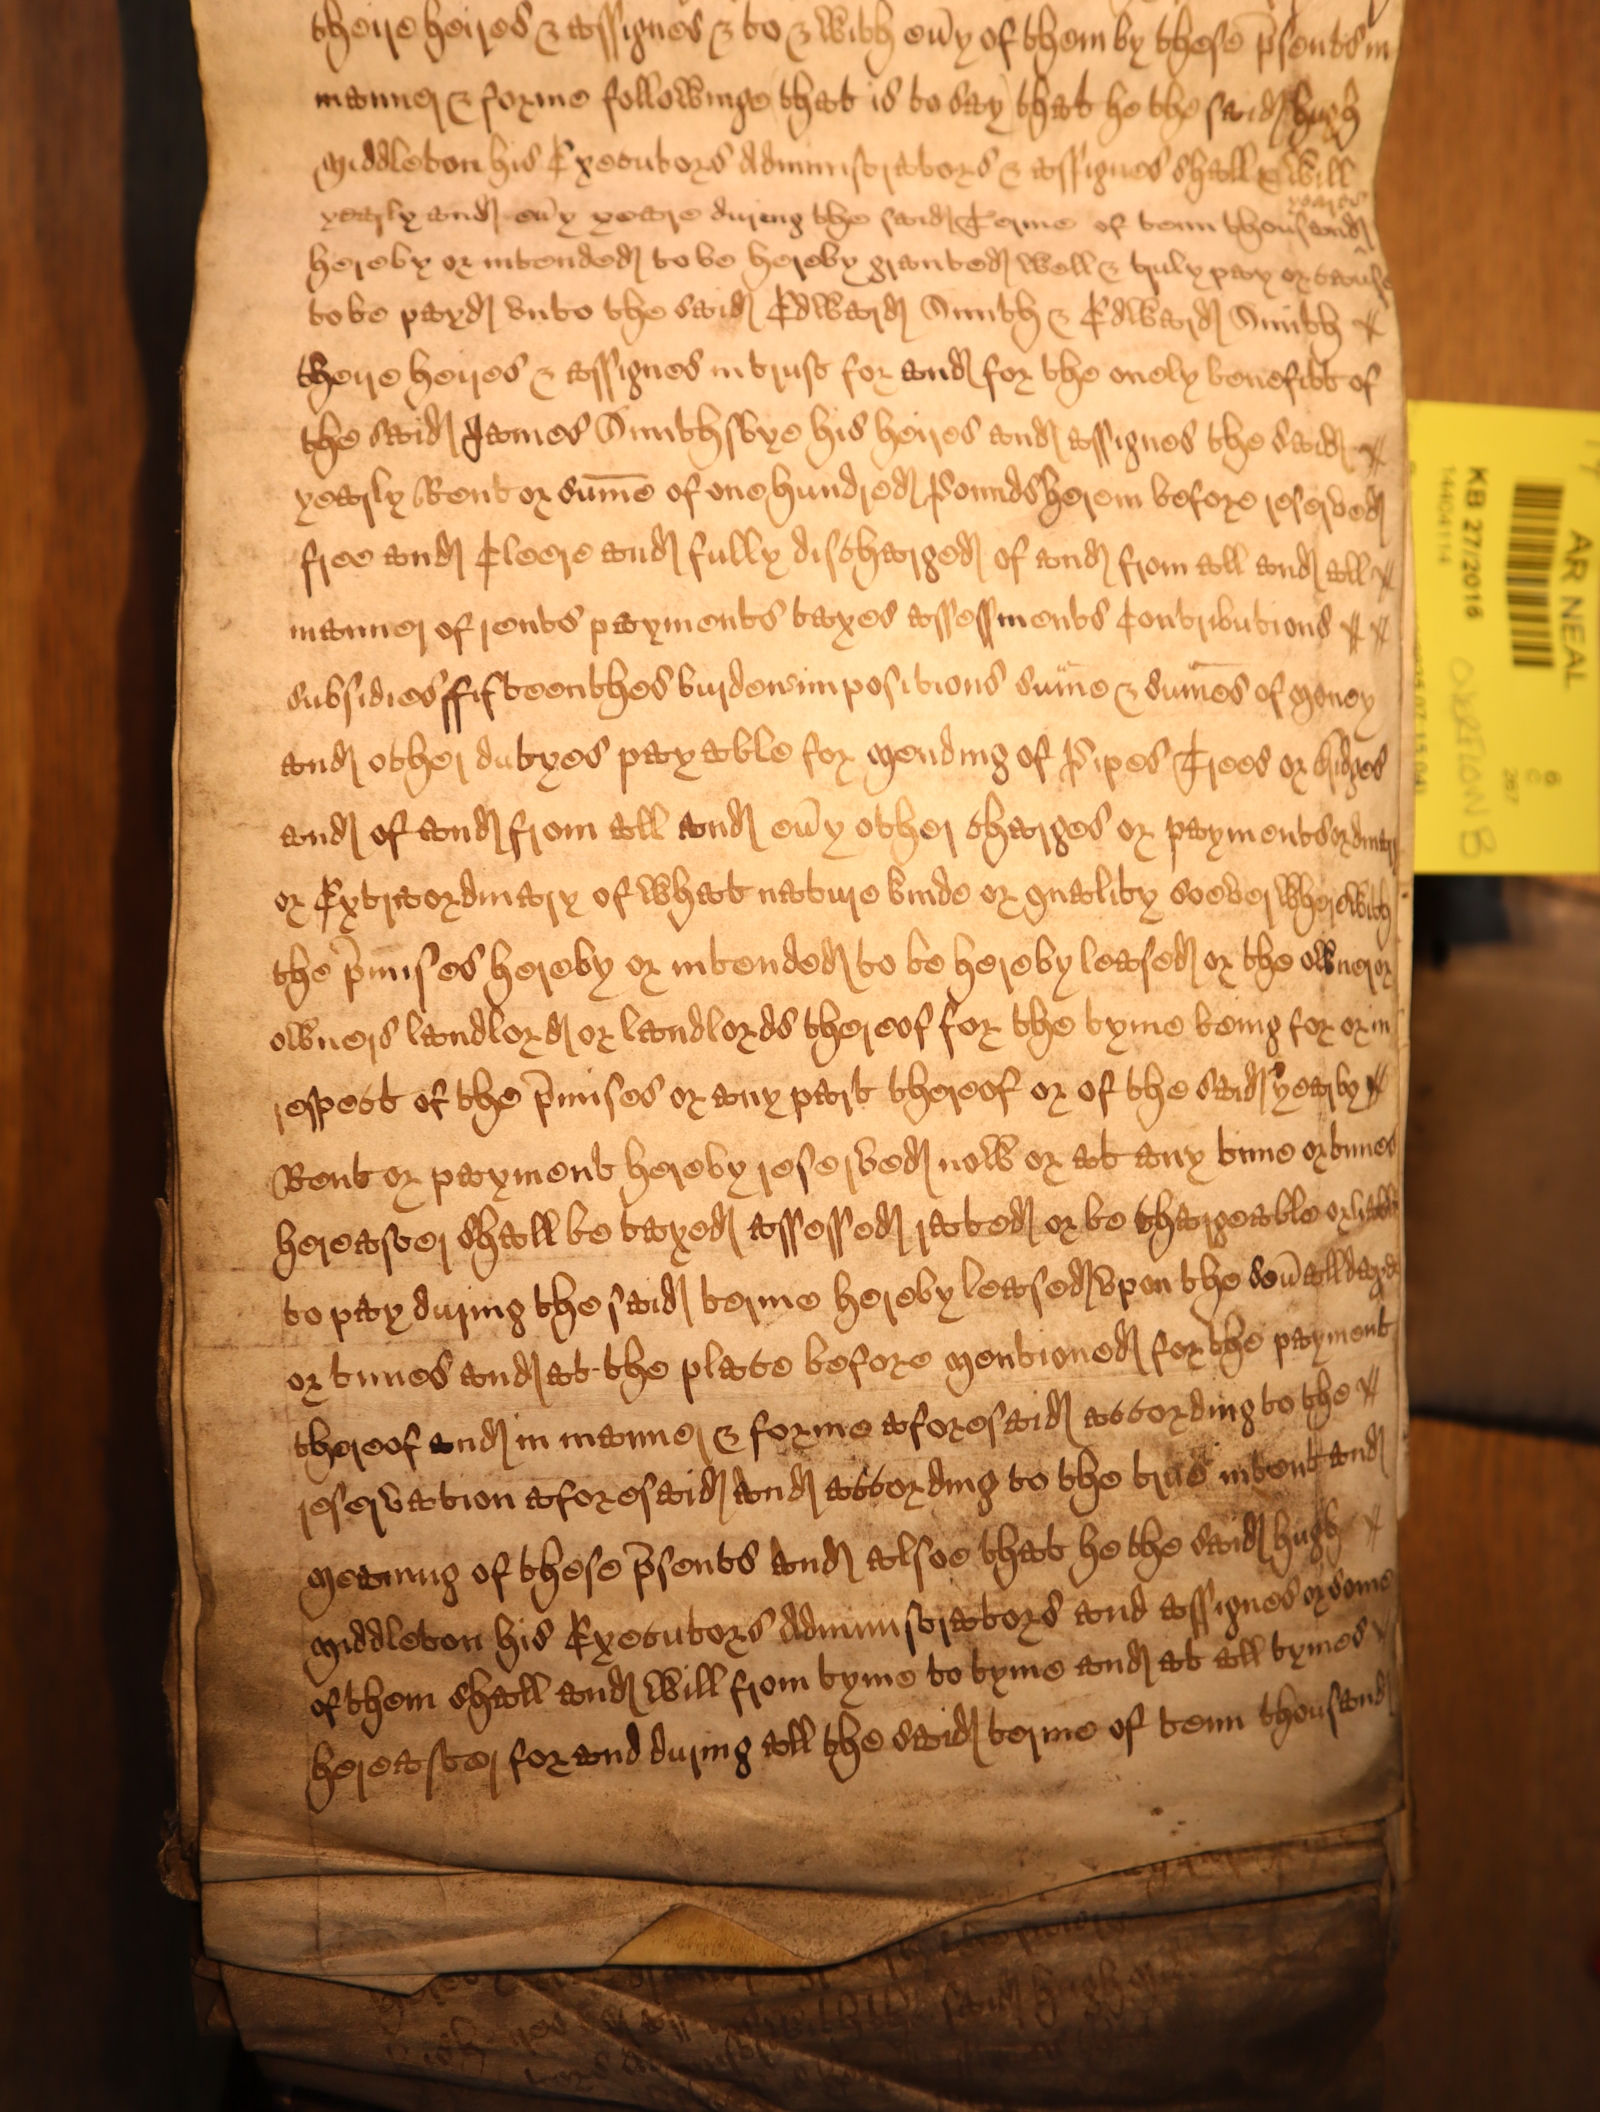 theire heires & assignes & to & with eu̅y of them by these p̅sents in
manner & forme followinge that is to say that he the said Hugh
Middleton his Executors Administrators & assignes shall & will
yearly and eu̅y yeare during the said Terme of tenn thousand yeares
hereby or intended to be hereby granted well & truly pay or cause
to be payd vnto the said Edward Smith & Edward Smith
theire heires & assignes in trust for and for the onely benefitt of
the said James Smithsbye his heires and assignes the said
yearly Rent or sum̅e of one hundred Pounds herein before reserved
free and Cleere and fully discharged of and from all and all
manner of rents payments taxes assessments Contributions
subsidies ffifteenthes burdens impositions sum̅e & sum̅es of money
and other dutyes payable for mending of Pipes Trees or bridges
and of and from all and eu̅y other charges or payments ordinary
or Extraordinary of what nature kinde or quality soever wherewith
the p̅mises hereby or intended to be hereby leased or the owner or
owners landlord or landlords thereof for the tyme being for or in
respect of the p̅mises or any part thereof or of the said yearly
Rent or payment hereby reserved now or at any time or times
hereafter shall be taxed assessed rated or be chargeable or liable
to pay during the said terme hereby leased vpon the seu̅all dayes
or times and at the place before mentioned for the payment
thereof and in manner & forme aforesaid according to the
reservation aforesaid and according to the true intent and
meaning of these p̅sents and alsoe that he the said Hugh
Middleton his Executors Administrators and assignes or some
of them shall and will from tyme to tyme and at all tymes
hereafter for and during all the said terme of tenn thousand
AR NEAL
KB 27/2016
14404114